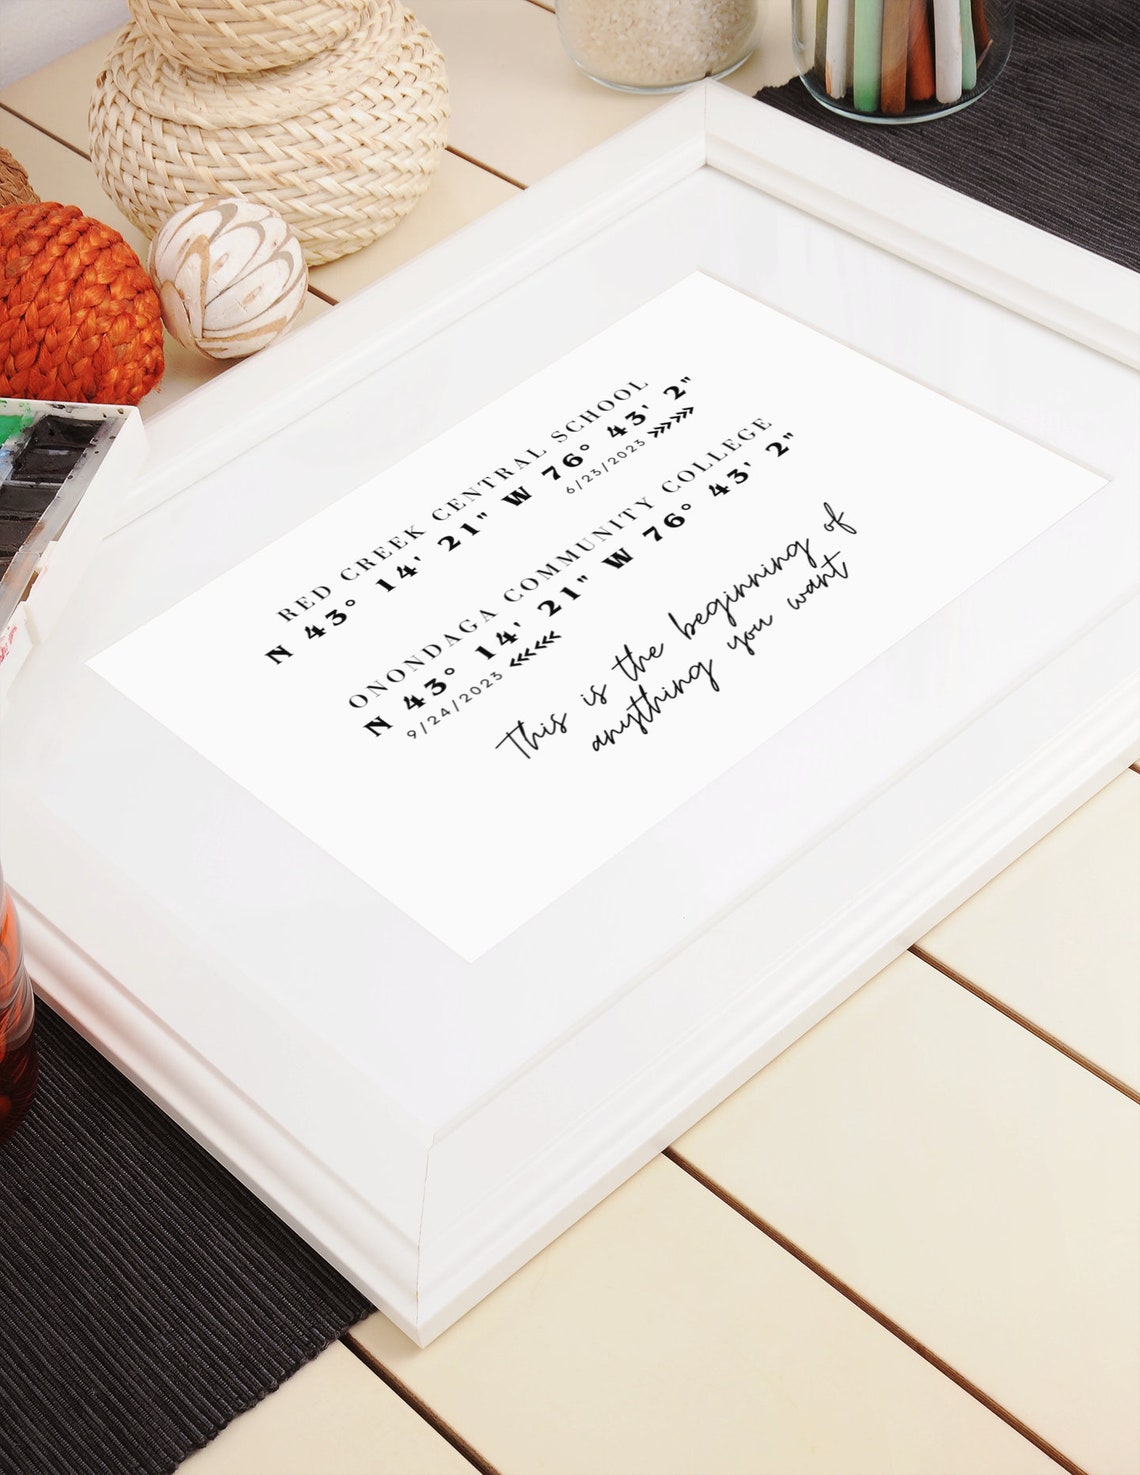 RED CREEK CENTRAL SCHOOL
N 43° 14' 21" W 76° 43' 2"
6/23/2023
ONONDAGA COMMUNITY COLLEGE
N 43° 14' 21" W 76° 43' 2"
9/24/2023
This is the beginning of
anything you want